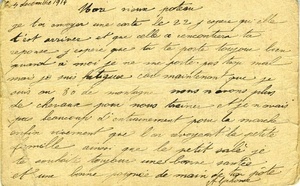 24 decembre 1914
Mon vieux poteau
je t'ai envoyer une carte le 22 j'espere qu'elle
t'est arriver et que celle a rencontrera ta
reponse j'espere que tu te porte toujour bien
quand a moi je ne me porte pas trop mal
mais je suis fatigue car maintenant que je
suis au 80 de montagne nous n'avons plus
de chevaux pour nous trainer et je n'avais
pas beaucoup d'entrainement pour la marche
enfin vivement que l'on revoyent la petite
famille ainsi que le petit salé je
te souhaite toujour une bonne santée
et une bonne poignée de main de ton pote
Alphonse